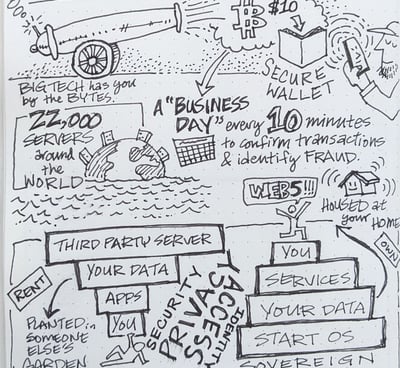 $10
SECURE
WALLET
BIG TECH has you
by the BYTES.
22,000
SERVERS
around
the
WORLD
A "BUSINESS
DAY" every 10 minutes
to confirm transactions
& identify FRAUD.
WEB5!!!
HOUSED at
your HOME
THIRD PARTY SERVER
YOUR DATA
APPS
YOU
RENT
PLANTED in
SOMEONE
ELSE'S
GARDEN
SECURITY
PRIVACY
ACCESS
IDENTITY
YOU
SERVICES
YOUR DATA
START OS
SOVEREIGN
OWN